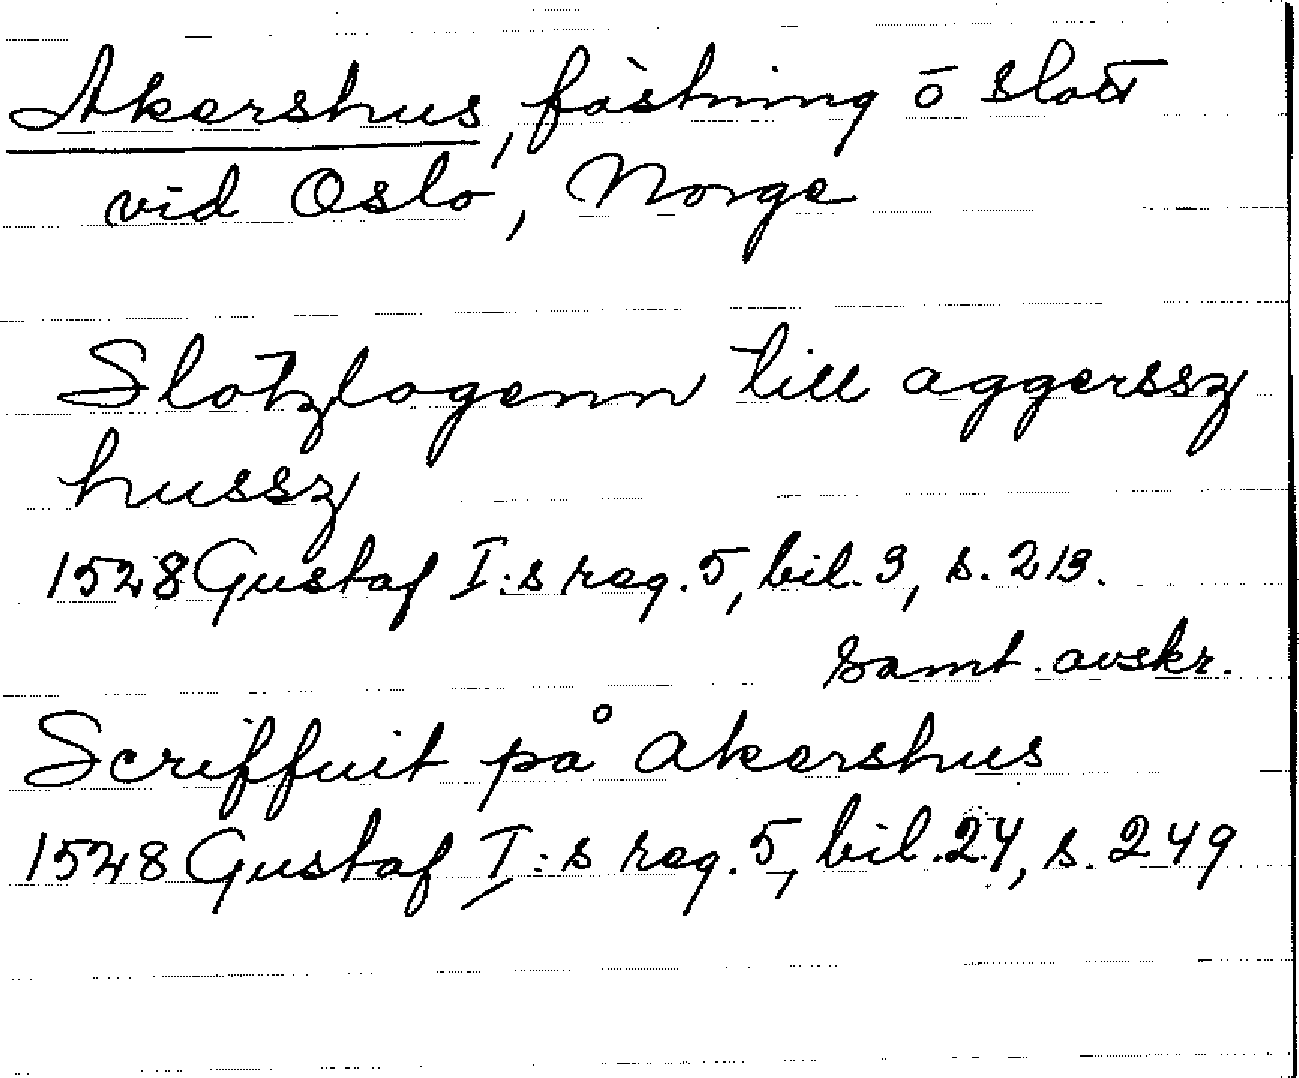 Akershus, fästning ō slott
vid Oslo, Norge
Slotzlogenn till aggerssz
hussz
1528 Gustaf I:s reg. 5, bil. 3, s. 213.
samt. avskr.
Scriffuit på Akershus
1528 Gustaf I:s reg. 5, bil. 24, s. 249